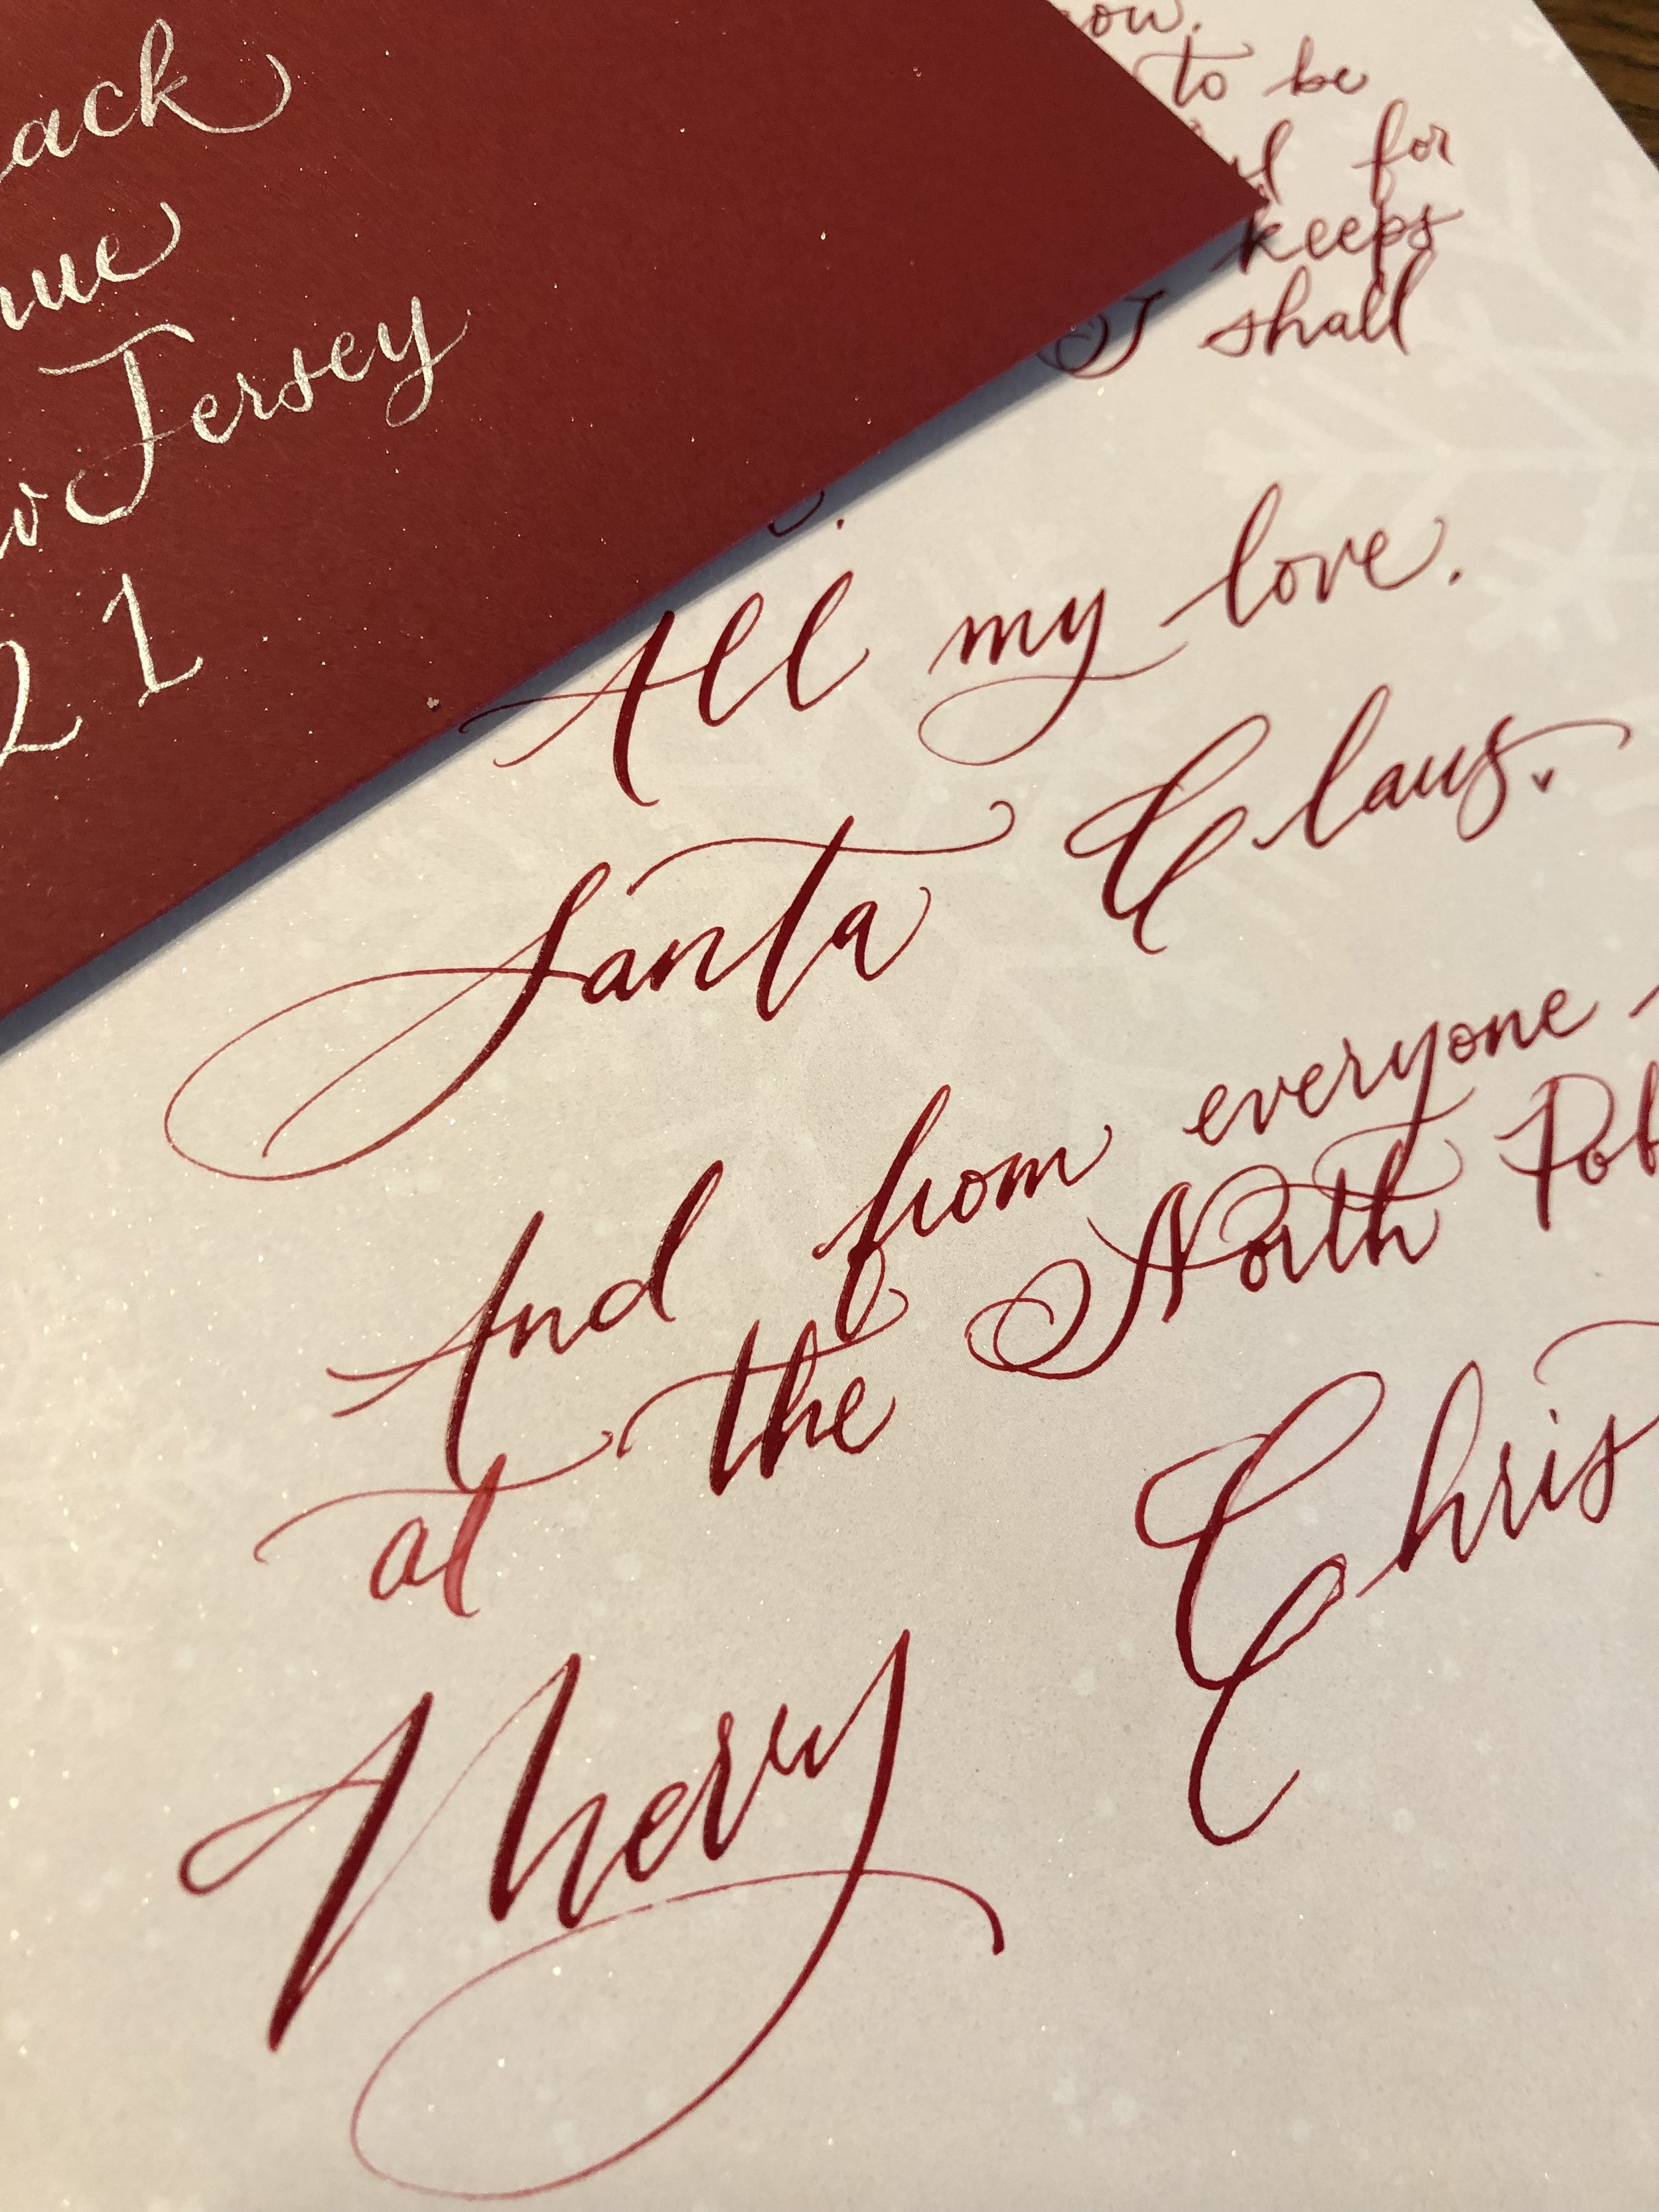 Jersey
21
to be
for
keeps
I shall
All my love.
Santa Claus.
And from everyone
at the North Pol
Merry Chris